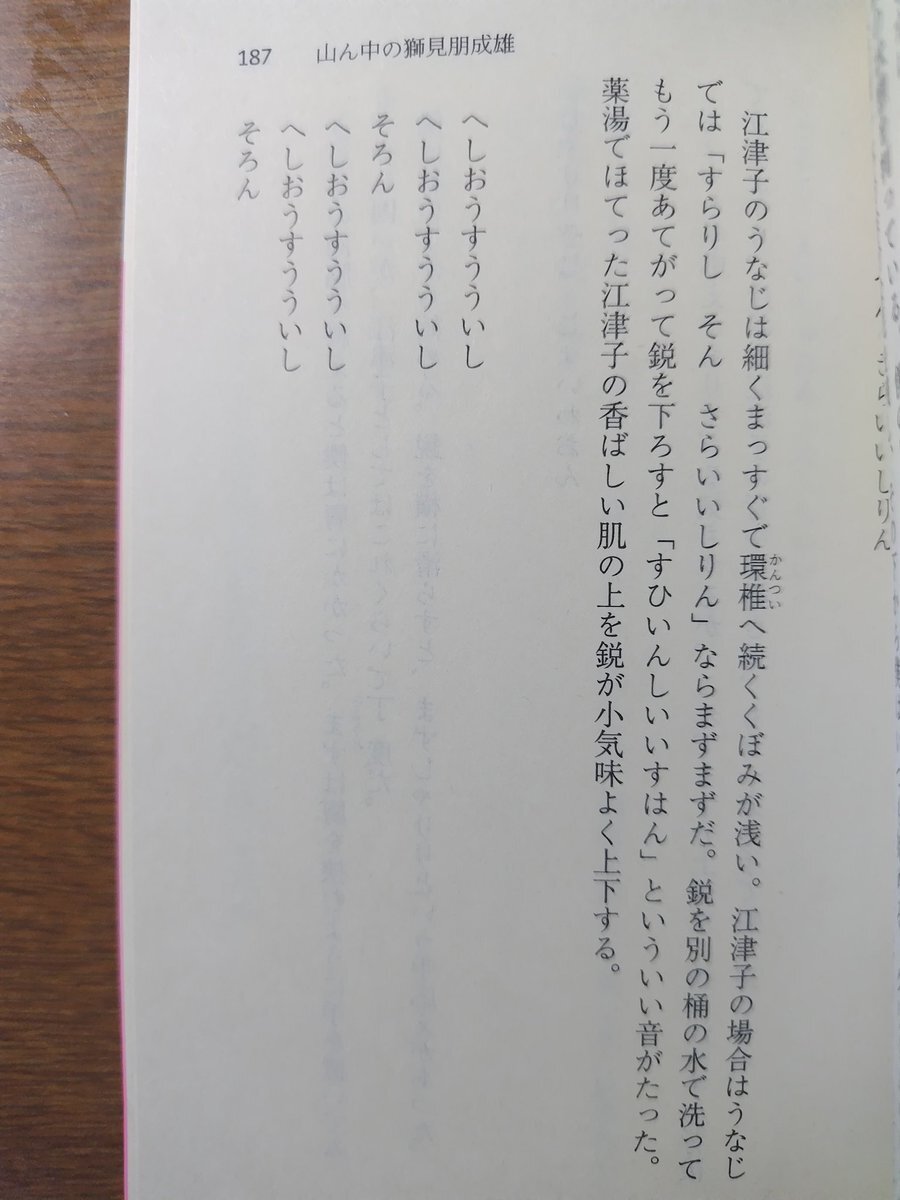 187 山ん中の獅見朋成雄
江津子のうなじは細くまっすぐで環椎へ続くくぼみが浅い。江津子の場合はうなじ
かんつい
では「すらりし そん さらいいしりん」ならまずまずだ。鋭を別の桶の水で洗って
もう一度あてがって鋭を下ろすと「すひいんしいいすはん」といういい音がたった。
薬湯でほてった江津子の香ばしい肌の上を鋭が小気味よく上下する。
へしおうすううぃし
へしおうすうういし
そろん
へしおうすうういし
へしおうすうういし
そろん